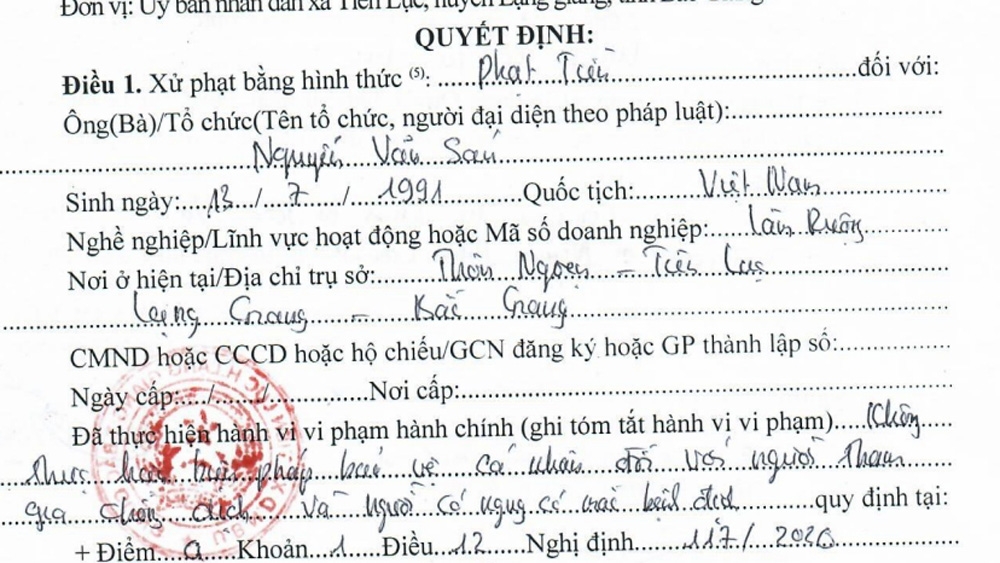 Đơn vị: Ủy ban nhân dân xã Tiên Lục, huyện Lạng giang, tỉnh Bắc Giang
QUYẾT ĐỊNH:
Điều 1. Xử phạt bằng hình thức (5): Phạt Tiền đối với:
Ông(Bà)/Tổ chức(Tên tổ chức, người đại diện theo pháp luật):
Nguyễn Văn Sáu
Sinh ngày: 13 / 7 / 1991 Quốc tịch: Việt Nam
Nghề nghiệp/Lĩnh vực hoạt động hoặc Mã số doanh nghiệp: Làm Ruộng
Nơi ở hiện tại/Địa chỉ trụ sở: Thôn Ngoẹn - Tiên Lục
Lạng Giang - Bắc Giang
CMND hoặc CCCD hoặc hộ chiếu/GCN đăng ký hoặc GP thành lập số:
Ngày cấp: / / Nơi cấp:
Đã thực hiện hành vi vi phạm hành chính (ghi tóm tắt hành vi vi phạm) Không
thực hiện biện pháp bảo vệ cá nhân đối với người Tham
gia chống dịch và người có nguy cơ mắc bệnh dịch quy định tại:
+ Điểm a Khoản 1 Điều 12 Nghị định 117/2020